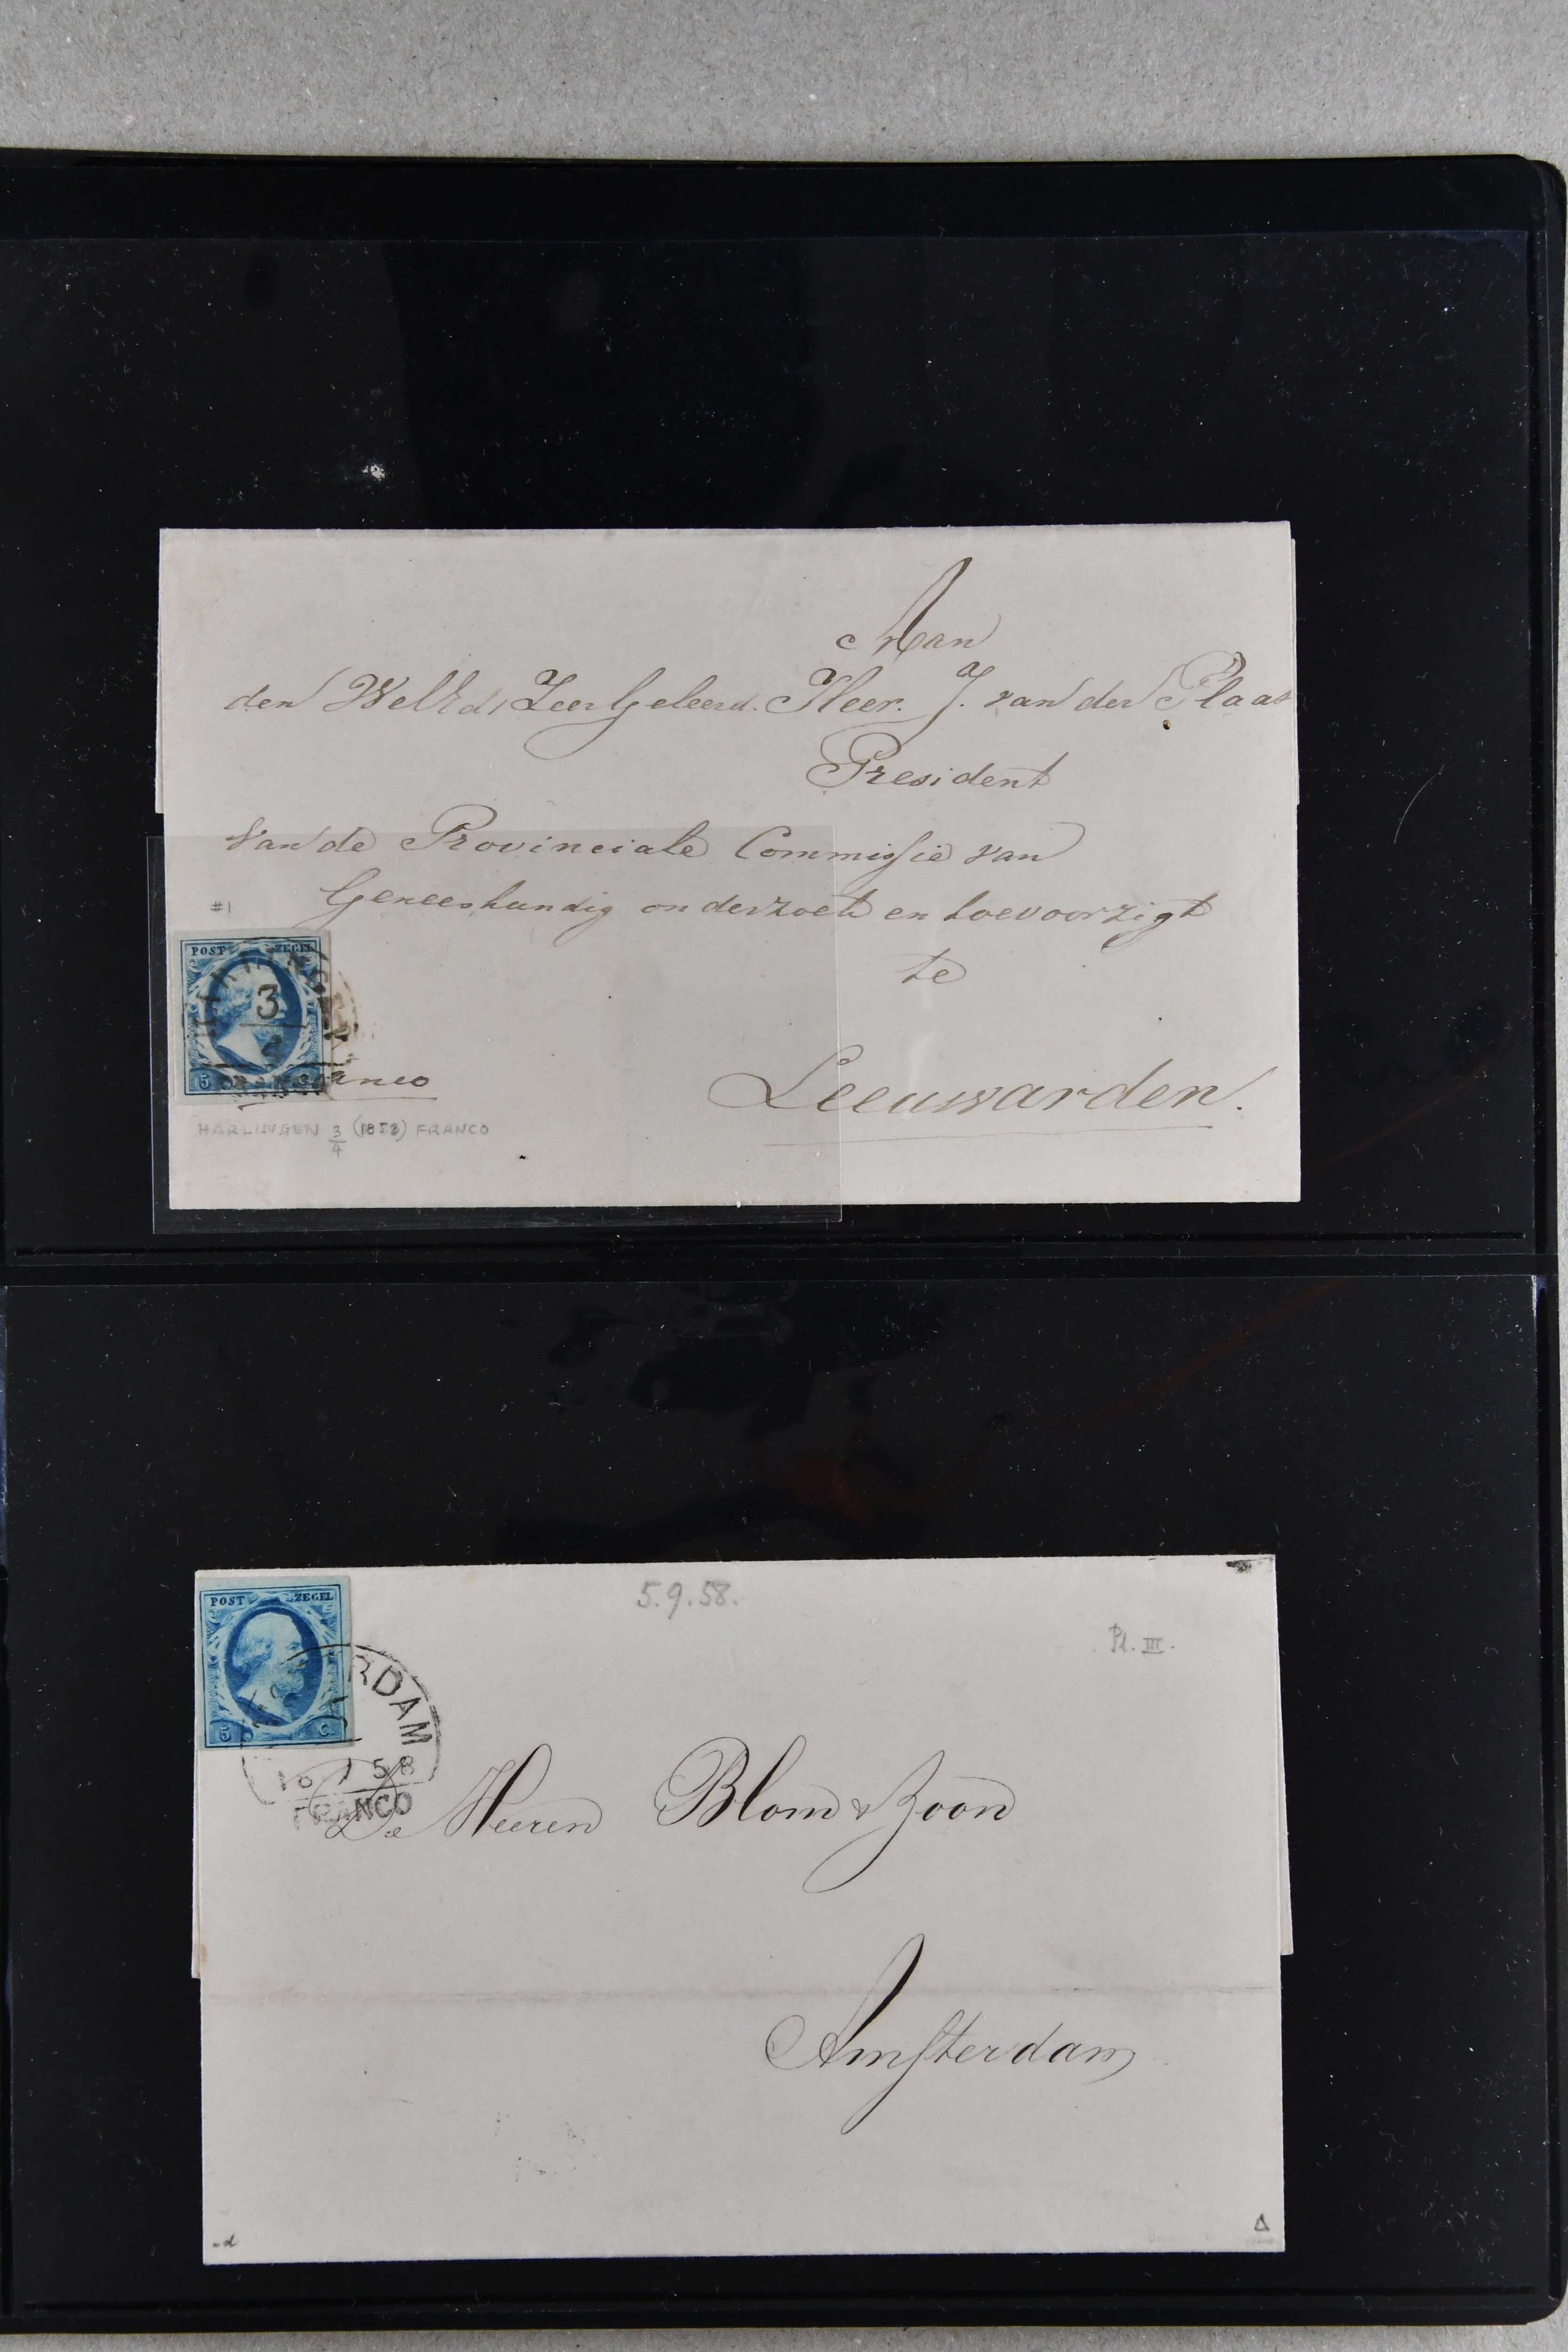 Aan
den WelEd. ZeerGeleerd. Heer. J. van der Plaats
President
van de Provinciale Commissie van
Geneeskundig onderzoek en toevoorzigt
te
Leeuwarden.
#1
POST ZEGEL
HARLINGEN
3
5
Franco
HARLINGEN 3/4 (1858) FRANCO
5.9.58.
Pl. III.
POST ZEGEL
5 C.
RDAM
58
FRANCO
De Heeren Blom & Zoon
Amsterdam